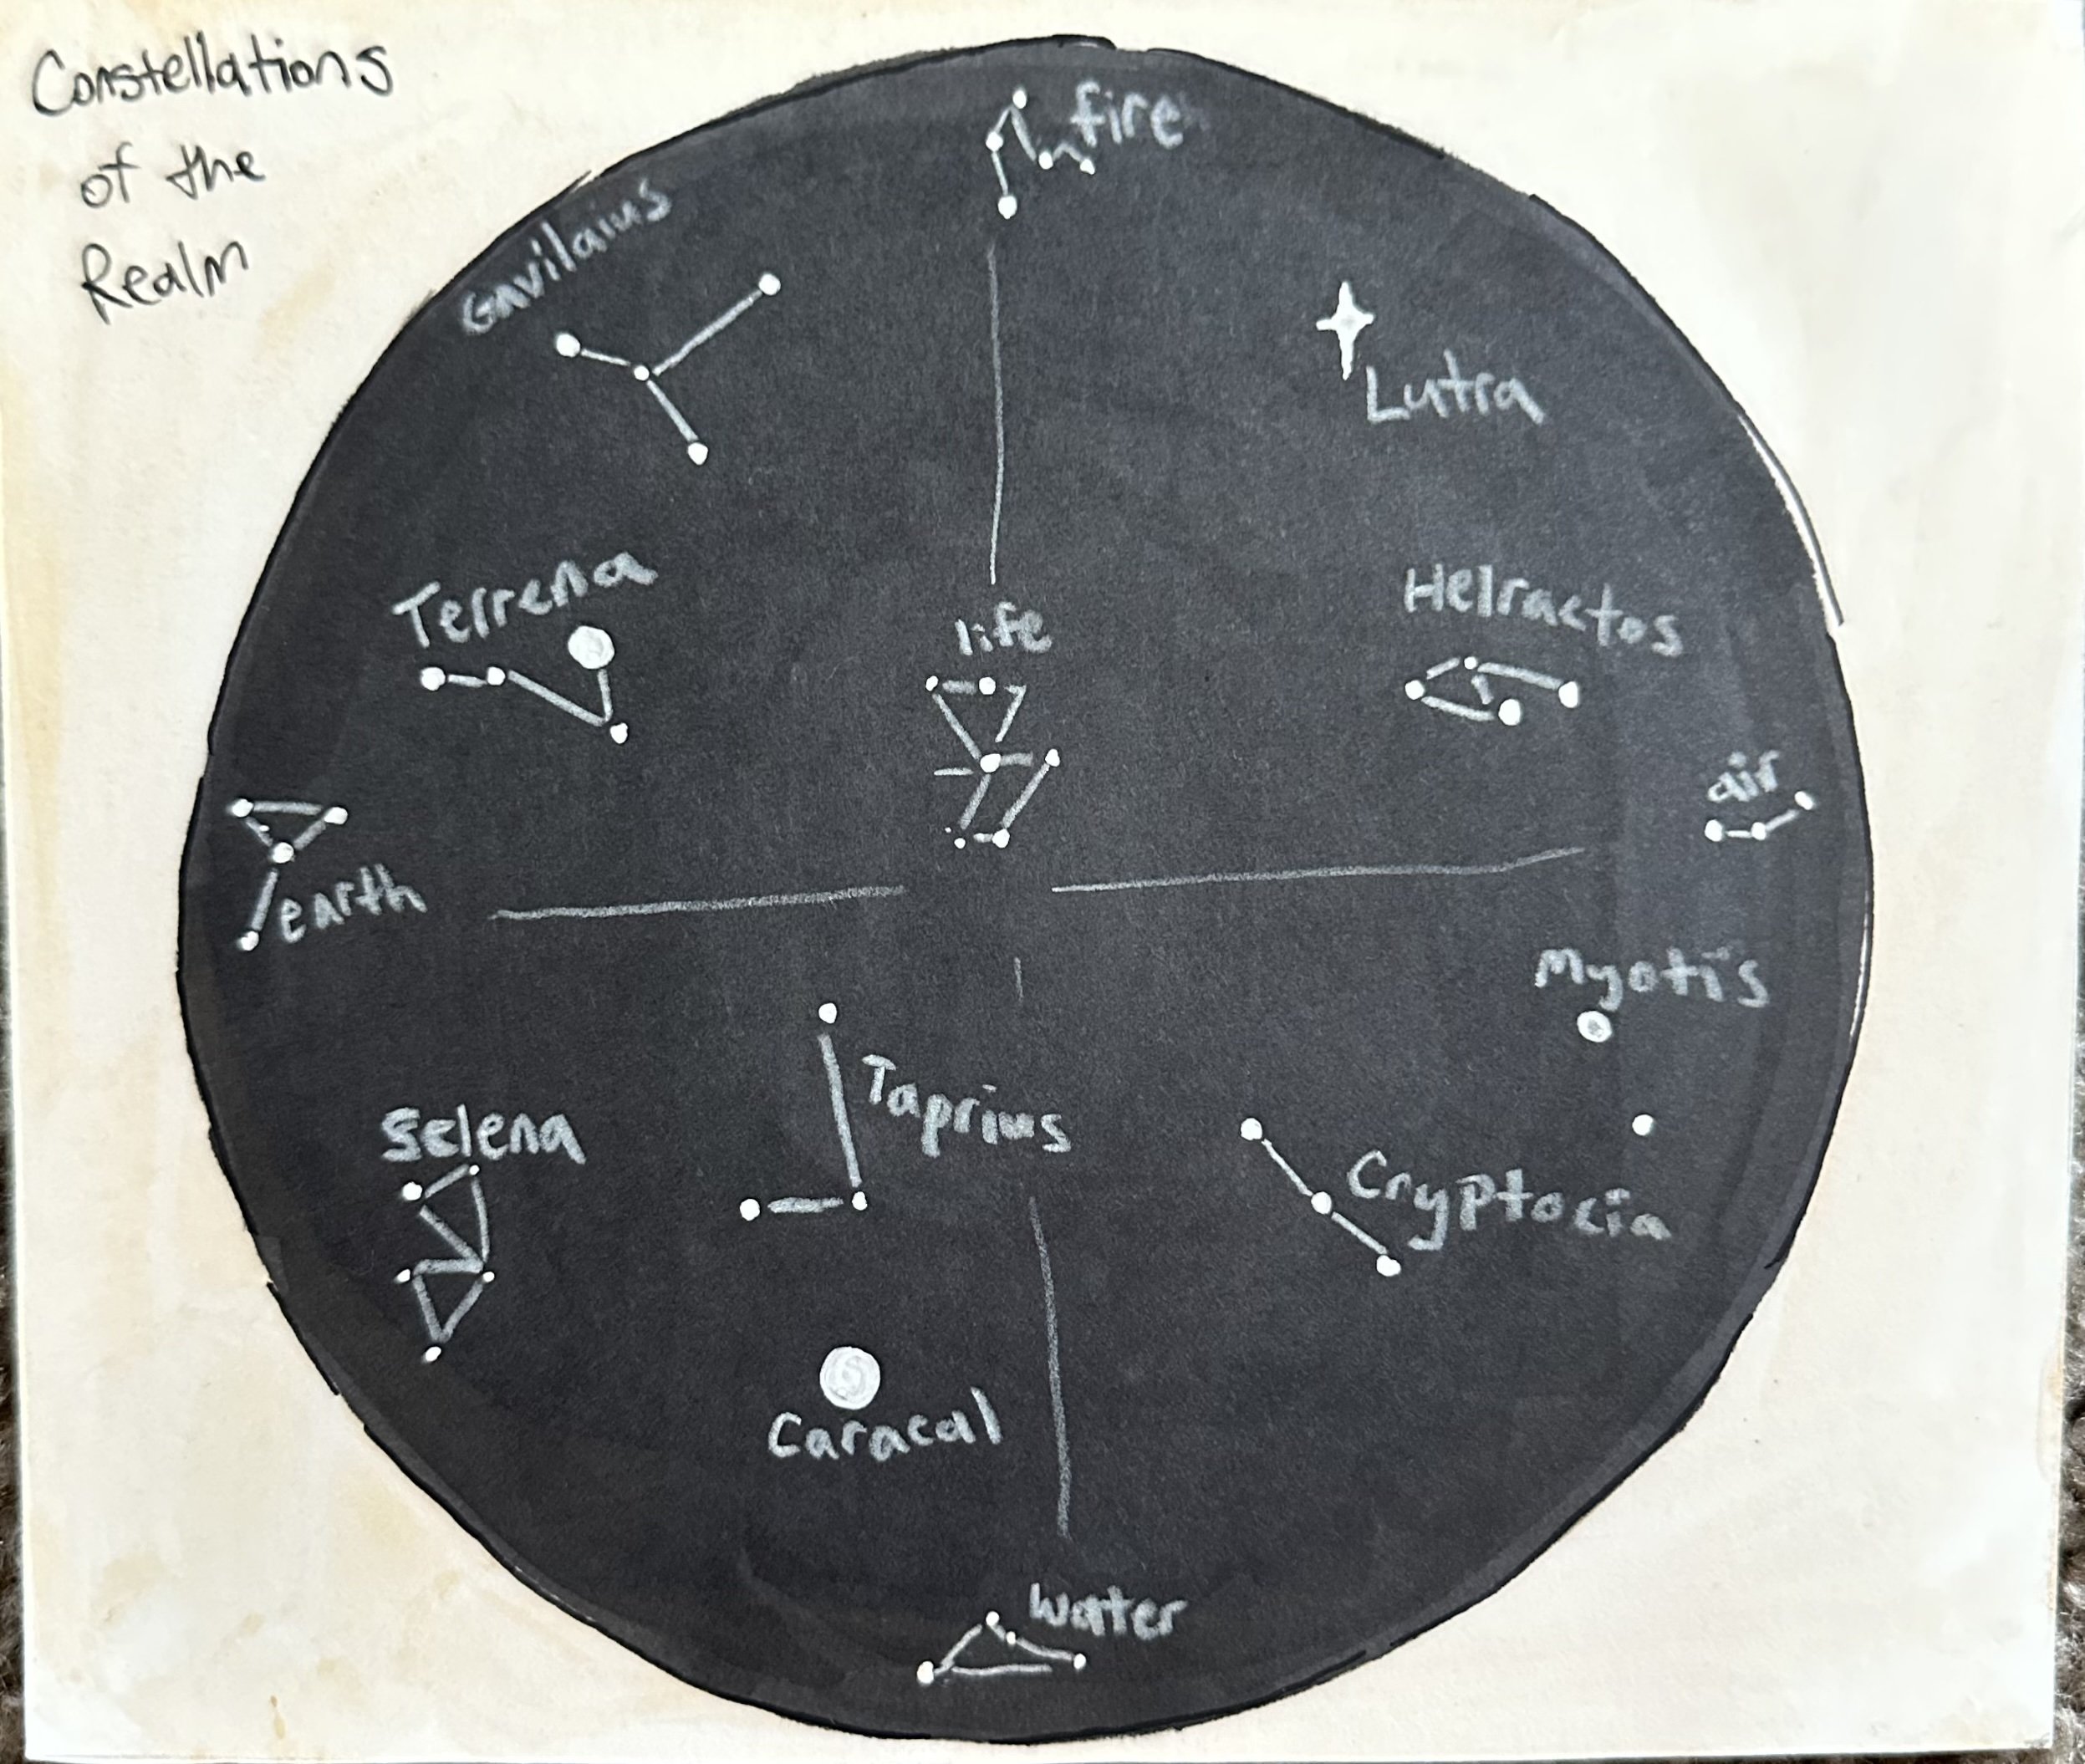 Constellations
of the
Realm
fire
Gavilaius
Lutra
Terrena
Helractos
life
air
earth
Myotis
Taprius
Selena
Cryptocia
Caracal
water